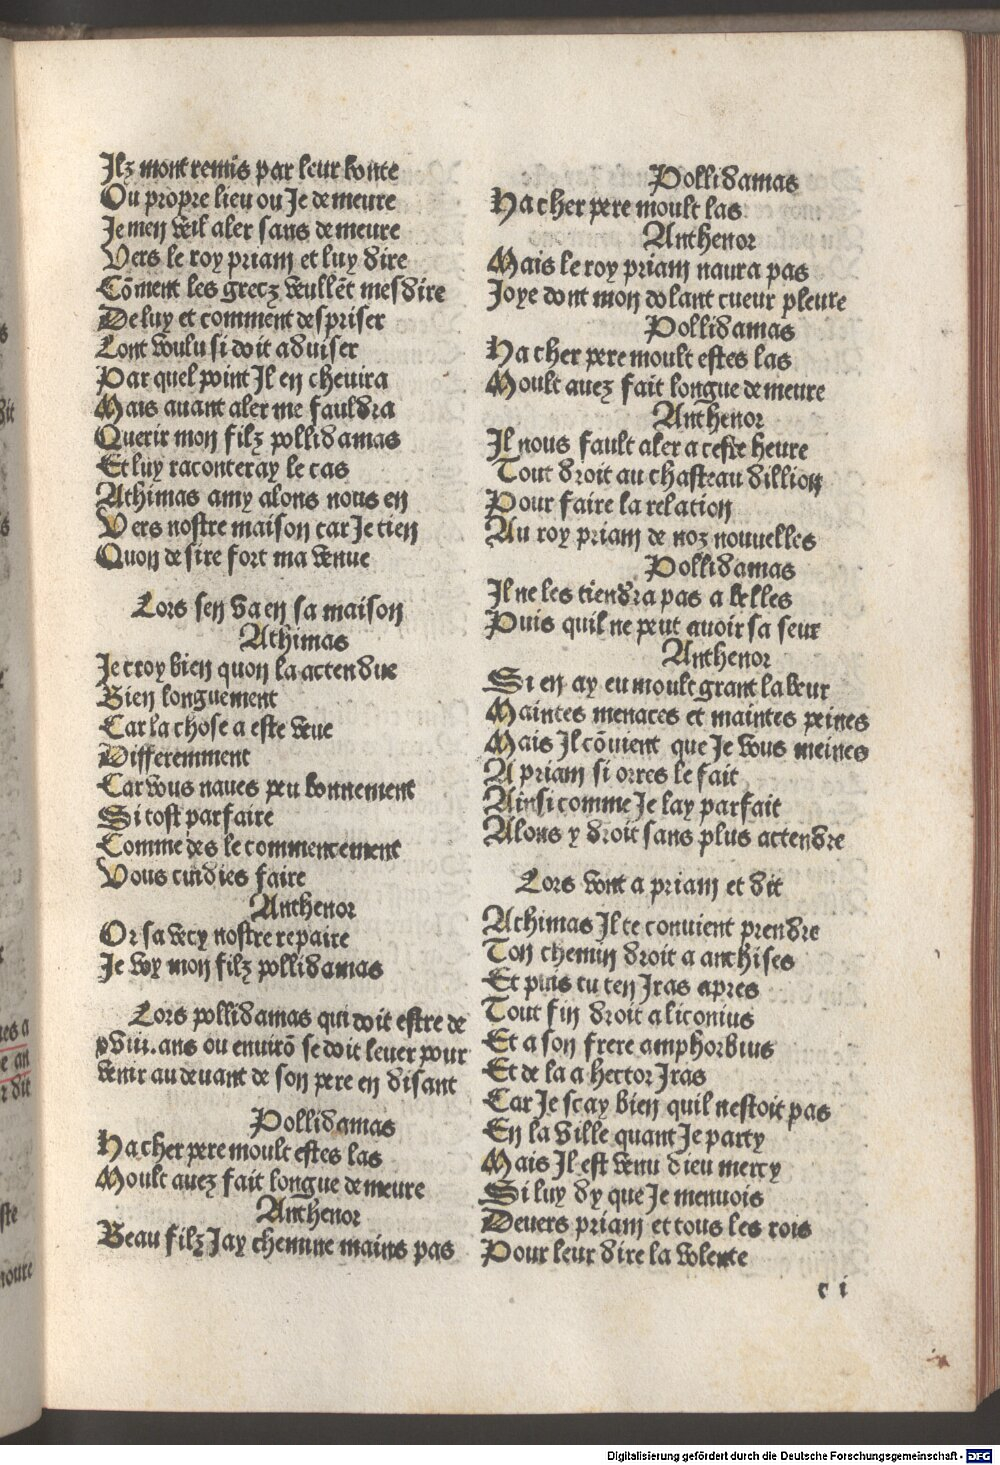 Ilz mont remis par leur bonte
Ou propre lieu ou Je demeure
Je men veil aler sans demeure
Vers le roy priam et luy dire
Cõment les grecz veullẽt mesdire
De luy et comment despriser
Lont voulu si doit aduiser
Par quel point Il en cheuira
Mais auant aler me fauldra
Querir mon filz pollidamas
Et luy raconteray le cas
Athimas amy alons nous en
Vers nostre maison car Je tien
Quon desire fort ma venue
Lors sen va en sa maison
Athimas
Je croy bien quon la attendue
Bien longuement
Car la chose a este veue
Differemment
Car vous naues peu bonnement
Si tost parfaire
Comme des le commencement
Vous cuidies faire
Anthenor
Or sa vecy nostre repaire
Je voy mon filz pollidamas
Lors pollidamas qui doit estre de
xviii. ans ou enuirõ se doit leuer pour
venir au deuant de son pere en disant
Pollidamas
Ha cher pere moult estes las
Moult auez fait longue demeure
Anthenor
Beau filz Jay chemine mains pas
Pollidamas
Ha cher pere moult las
Anthenor
Mais le roy priam naura pas
Joye dont mon dolant cueur pleure
Pollidamas
Ha cher pere moult estes las
Moult auez fait longue demeure
Anthenor
Il nous fault aler a ceste heure
Tout droit au chasteau dillion
Pour faire la relation
Au roy priam de noz nouuelles
Pollidamas
Il ne les tiendra pas a belles
Puis quil ne peut auoir sa seur
Anthenor
Si en ay eu moult grant labeur
Maintes menaces et maintes peines
Mais Il cõuient que Je vous meines
A priam si orres le fait
Ainsi comme Je lay parfait
Alons y droit sans plus attendre
Lors vont a priam et dit
Achimas Il te conuient prendre
Ton chemin droit a anchises
Et puis tu ten Iras apres
Tout fin droit a liconius
Et a son frere amphorbius
Et de la a hector Iras
Car Je scay bien quil nestoit pas
En la ville quant Je party
Mais Il est venu dieu mercy
Si luy dy que Je menuois
Deuers priam et tous les rois
Pour leur dire la volente
c i
Digitalisierung gefördert durch die Deutsche Forschungsgemeinschaft - DFG